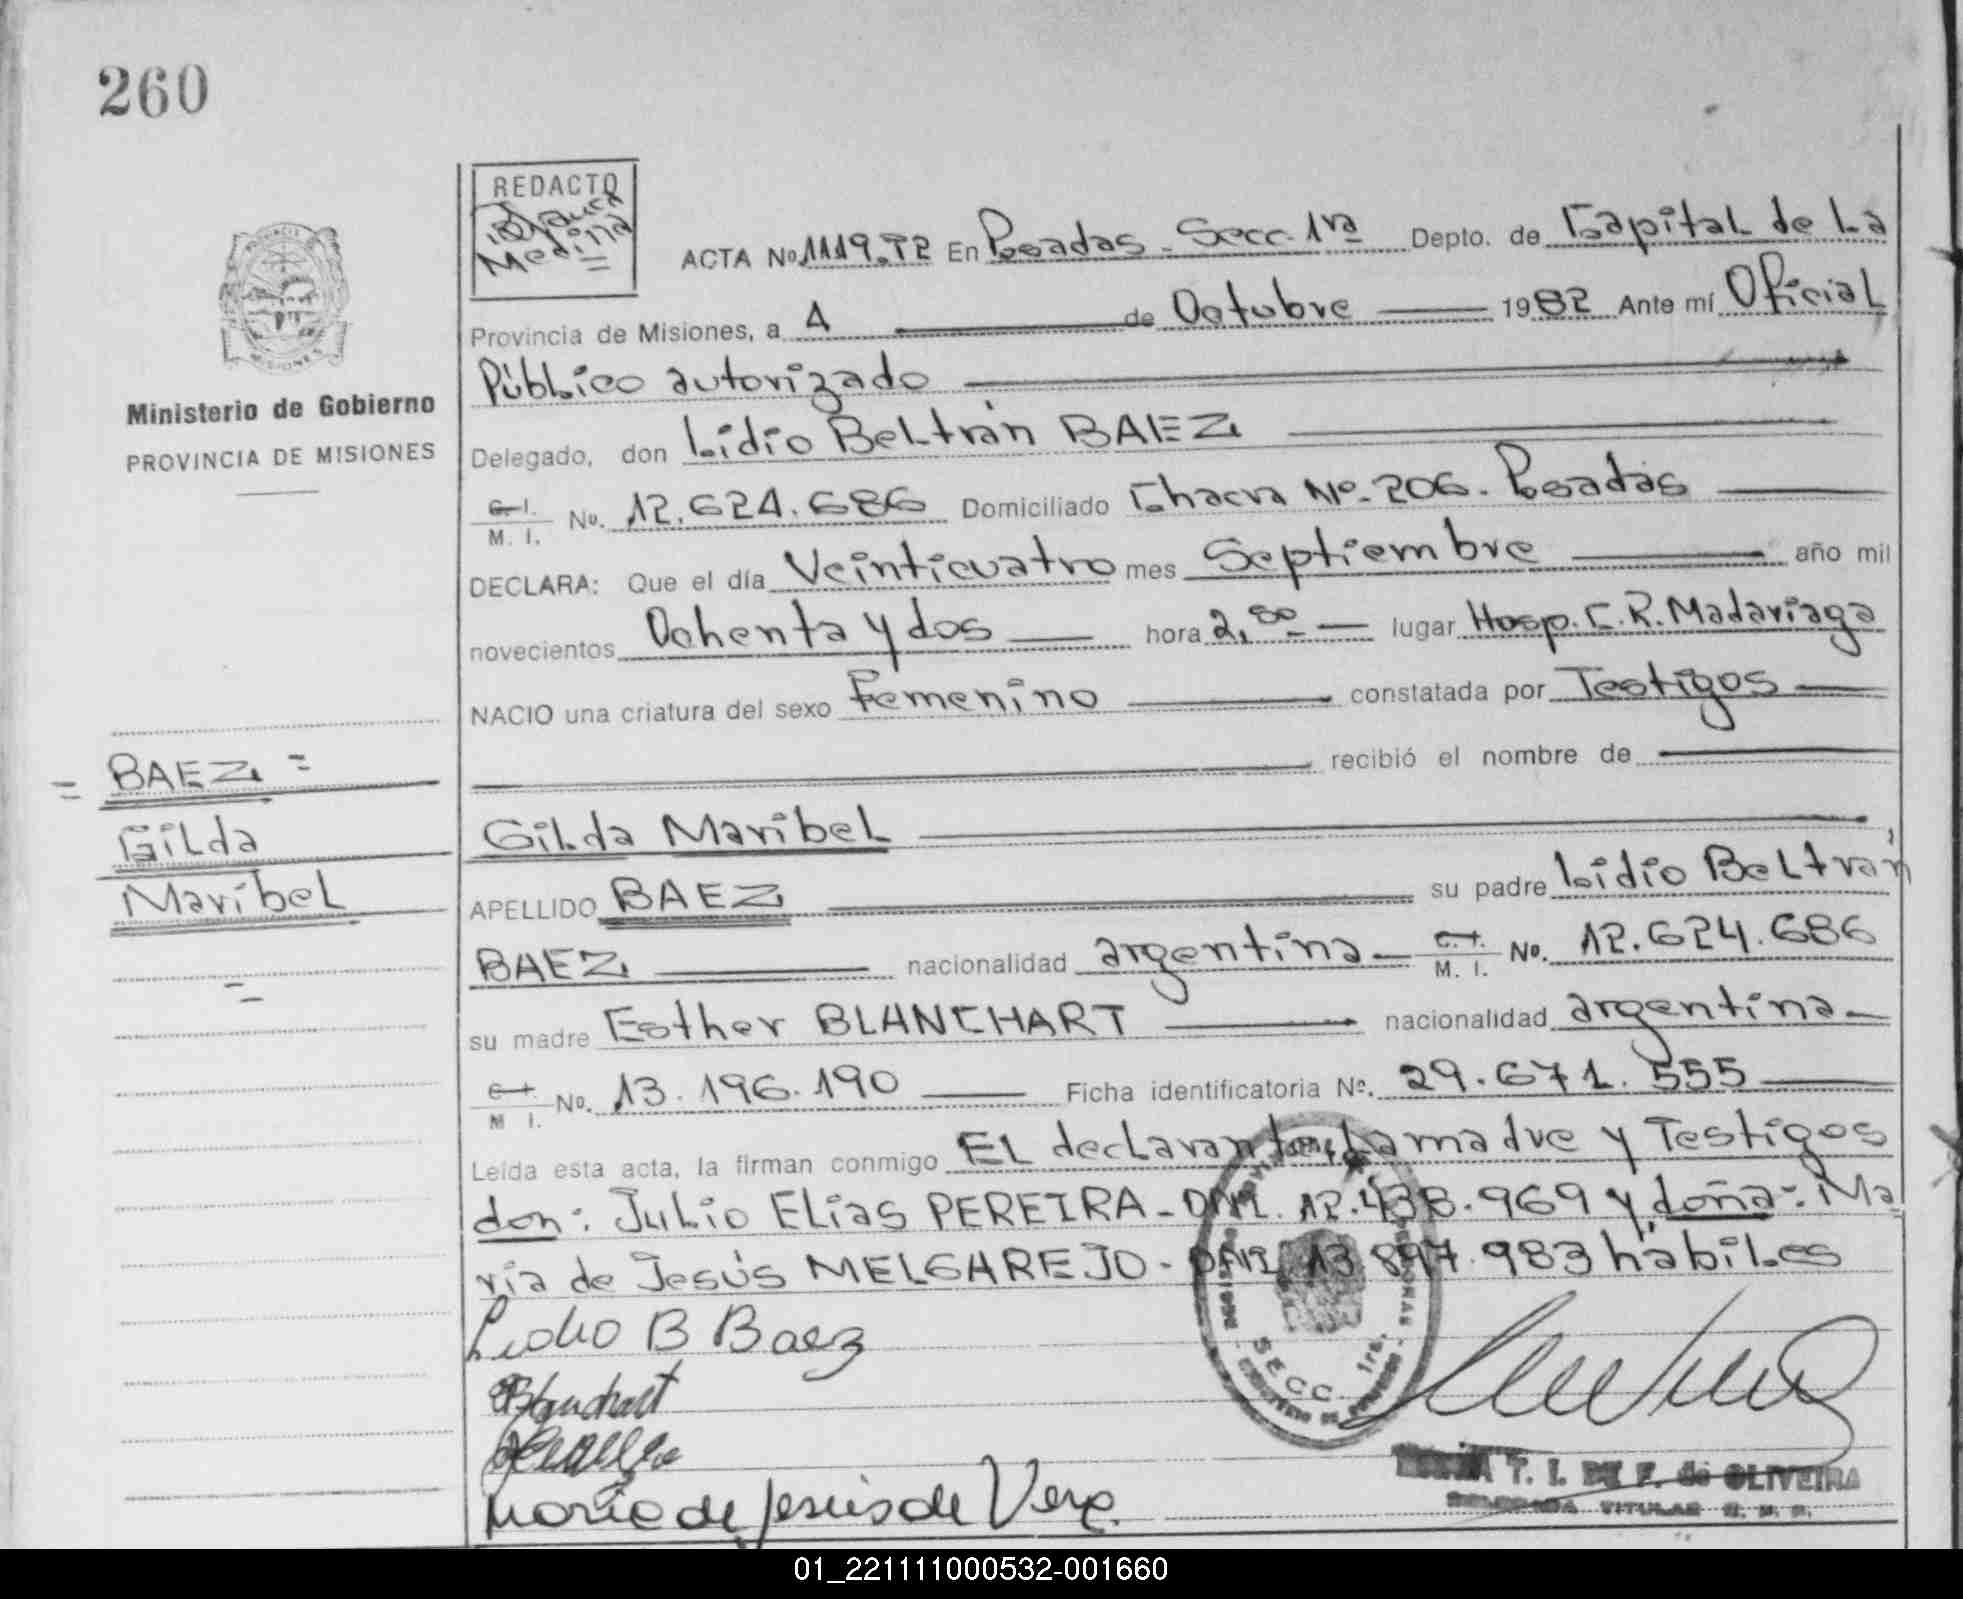 260
REDACTO
Blanca
Medina
ACTA No 1119.T2 En Posadas - Secc. 1ra Depto. de Capital de La
Provincia de Misiones, a 4 de Octubre 1982 Ante mí Oficial
Público autorizado
Ministerio de Gobierno
PROVINCIA DE MISIONES
Delegado, don Lidio Beltrán BAEZ
C. I. M. I. No. 12.624.686 Domiciliado Chacra Nº. 206. Posadas
DECLARA: Que el día Veinticuatro mes Septiembre año mil
novecientos Ochenta y dos hora lugar Hosp. C. R. Madariaga
NACIO una criatura del sexo Femenino constatada por Testigos
recibió el nombre de
= BAEZ =
Gilda
Maribel
Gilda Maribel
APELLIDO BAEZ su padre Lidio Beltrán
BAEZ nacionalidad argentina C. I. M. I. No. 12.624.686
su madre Esther BLANCHART nacionalidad argentina
C. I. M I. No. 13.196.190 Ficha identificatoria Nº. 29.671.555
Leída esta acta, la firman conmigo El declarante, La madre y Testigos
don: Julio Elias PEREIRA - DNI. 12.438.969 y doña: Ma
ría de Jesús MELGAREJO - DNI. 13.897.983 hábiles
Lidio B Baez
EBlanchart
María de Jesús de Vera
SECC. 1ra.
T. I. DE F. de OLIVEIRA
DELEGADA TITULAR
01_221111000532-001660